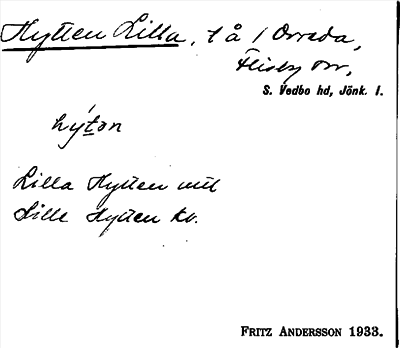 Hytten Lilla, t å / Orreda,
Flisby sn,
S. Vedbo hd, Jönk. l.
hýtən
Lilla Hytten
Lille Hytten kv.
FRITZ ANDERSSON 1933.